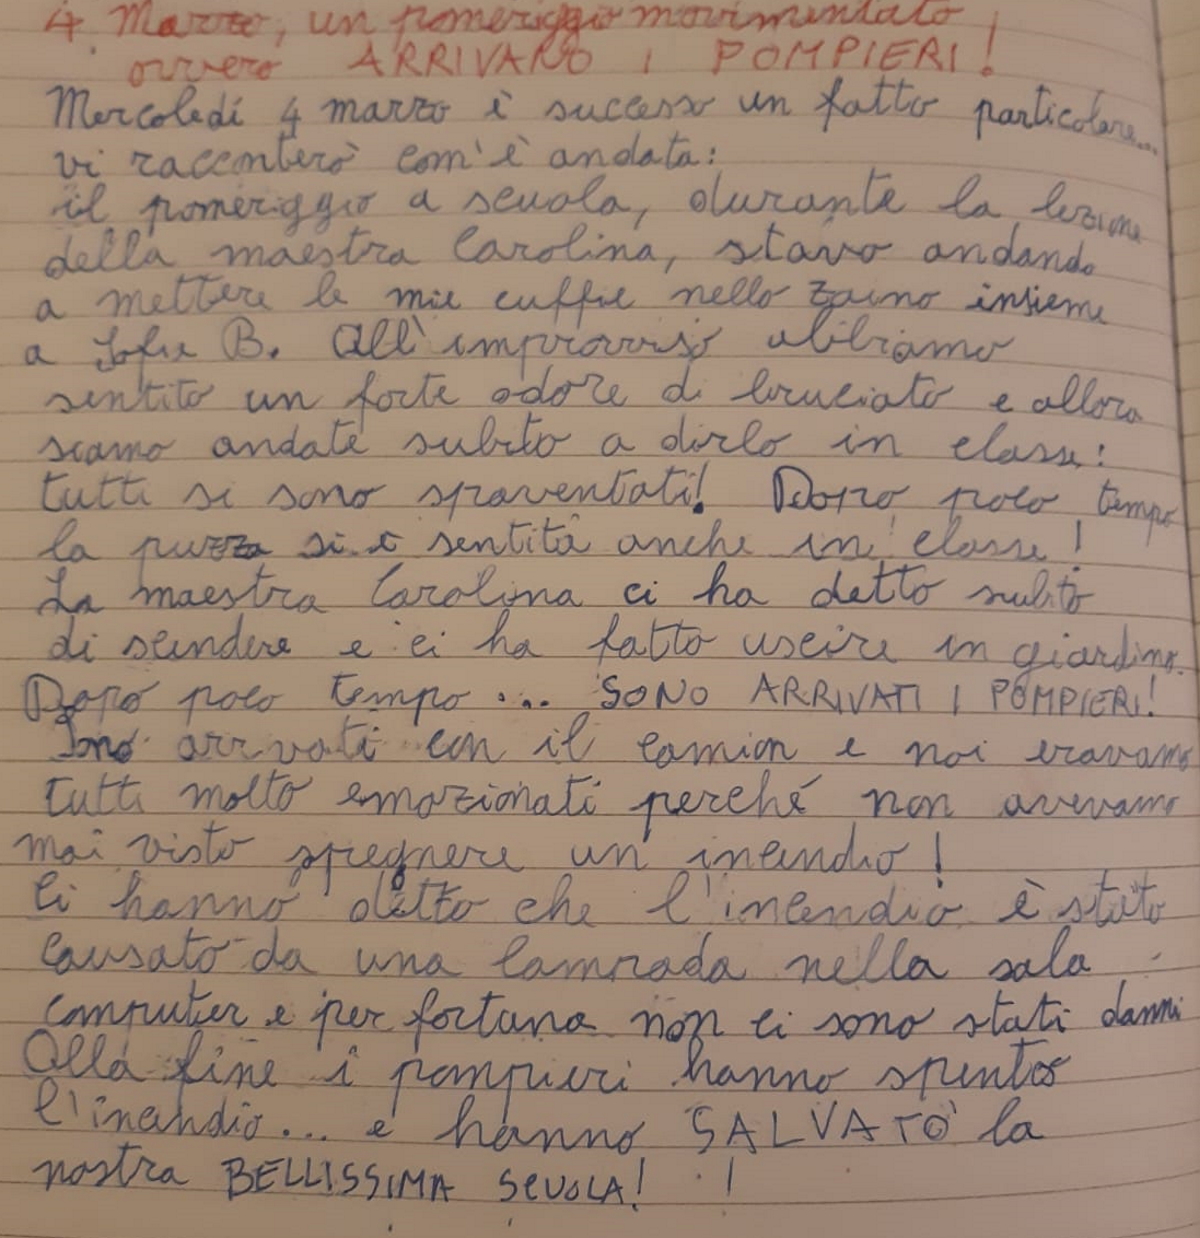 4 Marzo, un pomeriggio movimentato
ovvero ARRIVANO I POMPIERI!
Mercoledí 4 marzo è successo un fatto particolare...
vi racconterò com'è andata:
il pomeriggio a scuola, durante la lezione
della maestra Carolina, stavo andando
a mettere le mie cuffie nello zaino insieme
a Sofia B. All'improvviso abbiamo
sentito un forte odore di bruciato e allora
siamo andate subito a dirlo in classe:
tutti si sono spaventati! Dopo poco tempo
la puzza si è sentita anche in classe!
La maestra Carolina ci ha detto subito
di scendere e ci ha fatto uscire in giardino.
Dopo poco tempo... SONO ARRIVATI I POMPIERI!
Sono arrivati con il camion e noi eravamo
tutti molto emozionati perché non avevamo
mai visto spegnere un incendio!
Ci hanno detto che l'incendio è stato
causato da una lampada nella sala
computer e per fortuna non ci sono stati danni
Alla fine i pompieri hanno spento
l'incendio... e hanno SALVATO la
nostra BELLISSIMA SCUOLA! !